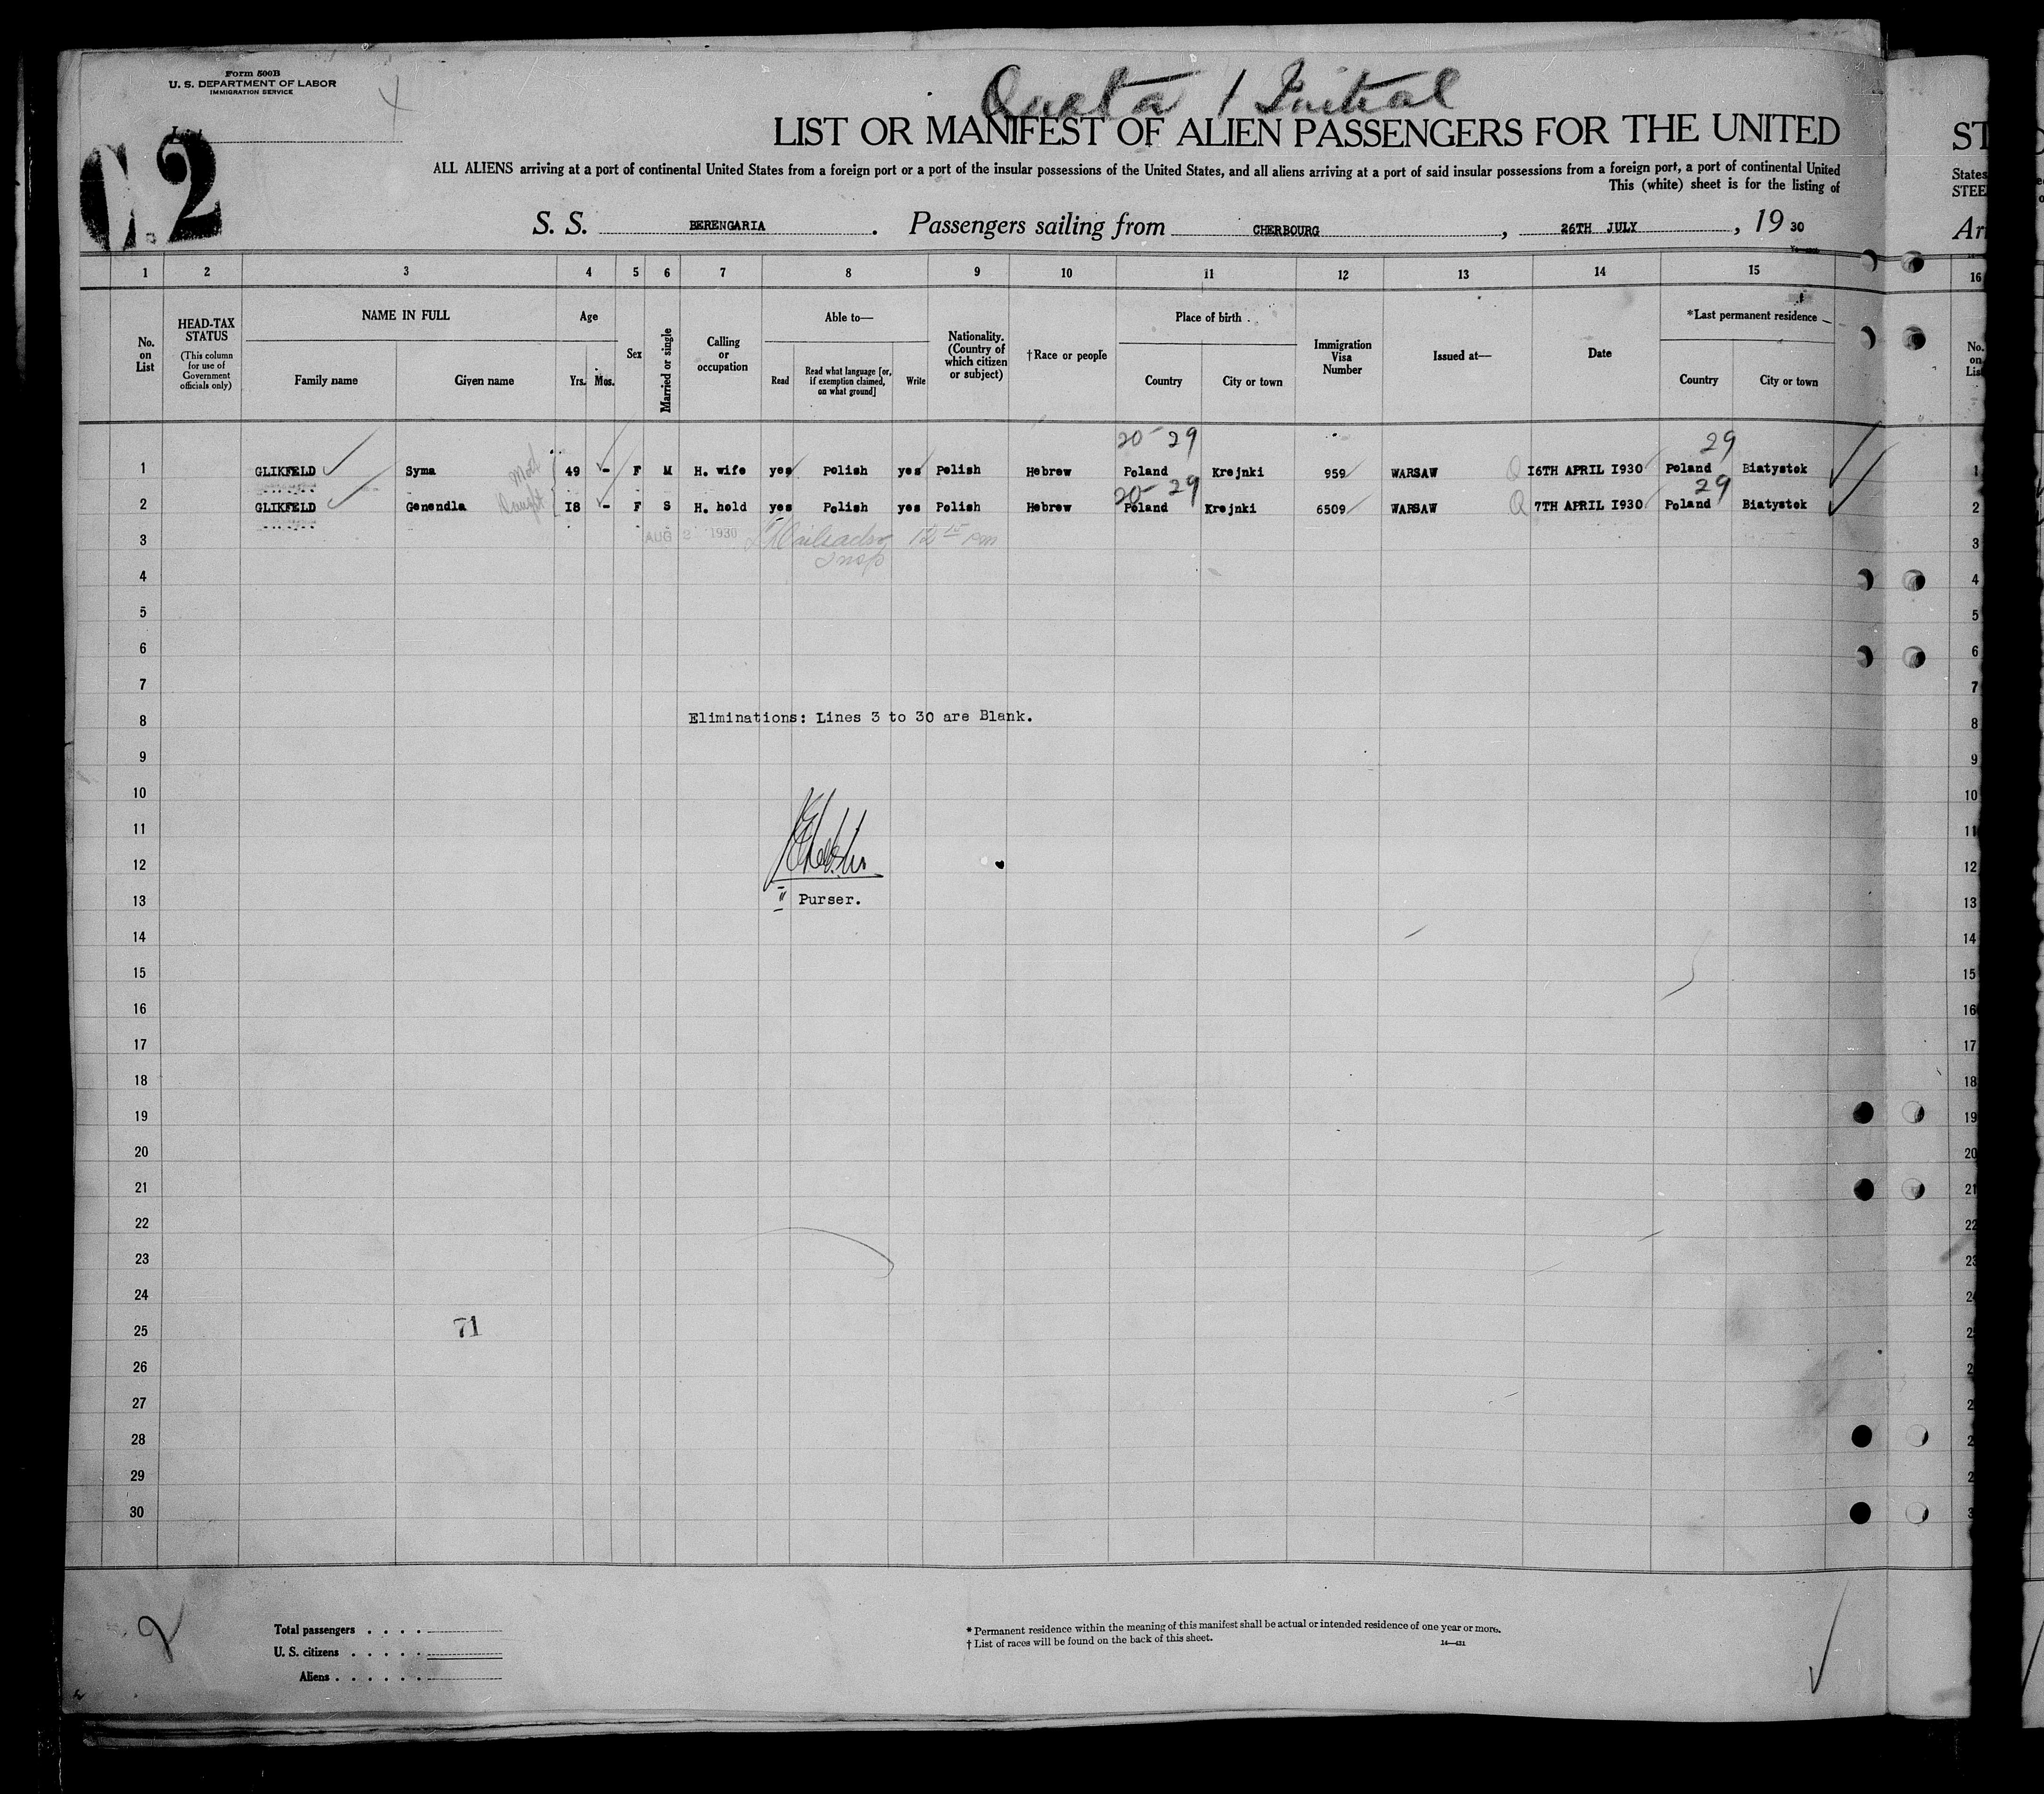 Form 500B
U. S. DEPARTMENT OF LABOR
IMMIGRATION SERVICE
Quota / Initial
2
LIST OR MANIFEST OF ALIEN PASSENGERS FOR THE UNITED
ST
ALL ALIENS arriving at a port of continental United States from a foreign port or a port of the insular possessions of the United States, and all aliens arriving at a port of said insular possessions from a foreign port, a port of continental United
States
This (white) sheet is for the listing of
STEE
S. S. BERENGARIA. Passengers sailing from CHERBOURG, 26TH JULY, 19 30
Arr
1 2 3 4 5 6 7 8 9 10 11 12 13 14 15 16
No. on List
HEAD-TAX STATUS (This column for use of Government officials only)
NAME IN FULL
Family name Given name
Age
Yrs. Mos.
Sex
Married or single
Calling or occupation
Able to—
Read
Read what language [or, if exemption claimed, on what ground]
Write
Nationality. (Country of which citizen or subject)
†Race or people
Place of birth
Country City or town
Immigration Visa Number
Issued at—
Date
*Last permanent residence
Country City or town
No. on List
20-29 29
1 GLIKFELD Syma 49 - F M H. wife yes Polish yes Polish Hebrew Poland Krejnki 959 WARSAW Q 16TH APRIL 1930 Poland Biatystok 1
20-29 29
2 GLIKFELD Genendla Daught 18 - F S H. hold yes Polish yes Polish Hebrew Poland Krejnki 6509 WARSAW Q 7TH APRIL 1930 Poland Biatystok 2
3 AUG 2 1930 12 15 pm 3
Insp
4 4
5 5
6 6
7 7
8 Eliminations: Lines 3 to 30 are Blank. 8
9 9
10 10
11 11
12 12
13 Purser. 13
14 14
15 15
16 16
17 17
18 18
19 19
20 20
21 21
22 22
23 23
24 2
71
25 2
26 2
27 2
28 2
29 2
30 3
2
Total passengers . . . .
U. S. citizens . . . . .
Aliens . . . . . .
* Permanent residence within the meaning of this manifest shall be actual or intended residence of one year or more.
† List of races will be found on the back of this sheet.
14—431